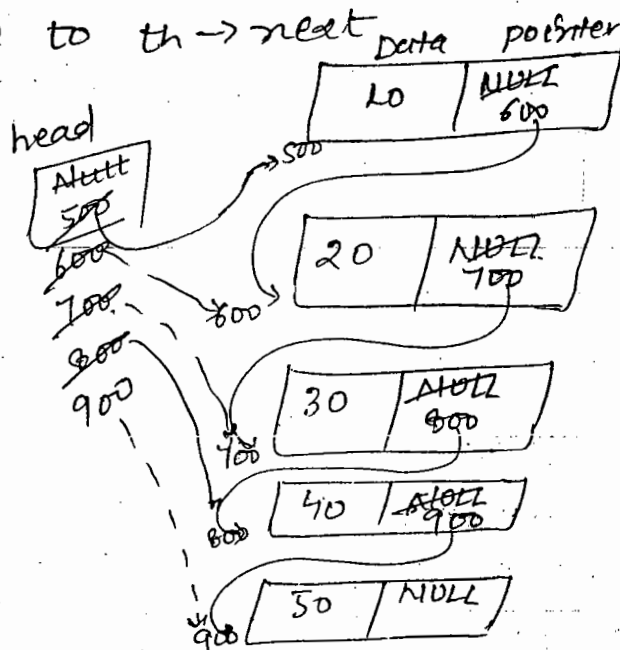 to th → next
Data pointer
head
10 NULL 600
500
NULL
500
600
700
800
900
20 NULL 700
600
30 NULL 800
700
40 NULL 900
800
50 NULL
900